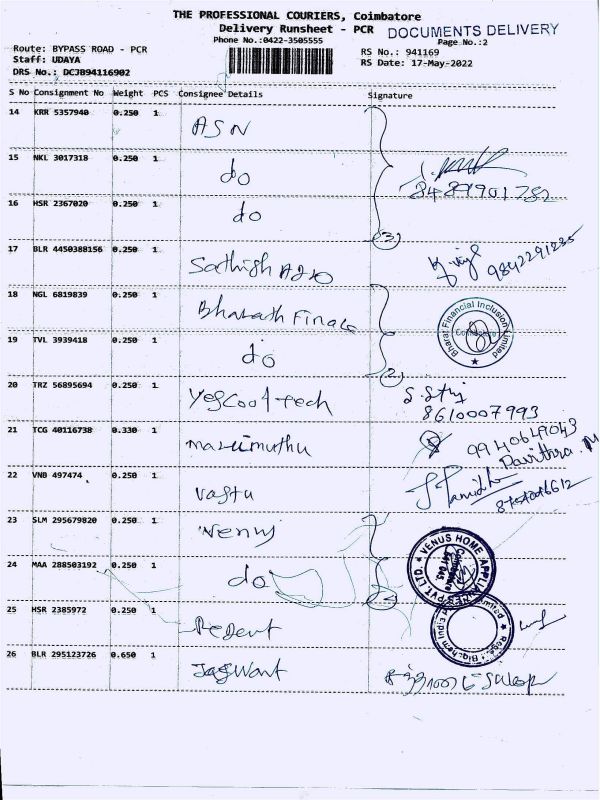 THE PROFESSIONAL COURIERS, Coimbatore
Delivery Runsheet - PCR DOCUMENTS DELIVERY
Phone No.:0422-3505555 Page No.:2
Route: BYPASS ROAD - PCR RS No.: 941169
Staff: UDAYA RS Date: 17-May-2022
DRS No.: DCJB94116902
S No Consignment No Weight PCS Consignee Details Signature
14 KRR 5357940 0.250 1 ASN
15 NKL 3017318 0.250 1 do
8489901782
16 HSR 2367020 0.250 1 do
3
17 BLR 4450388156 0.250 1 Sathish A210 9842291235
18 NGL 6819839 0.250 1 Bharath Finace
Bharat Financial Inclusion Limited
19 TVL 3939418 0.250 1 do
2
20 TRZ 56895694 0.250 1 Yescool tech
8610007993
21 TCG 40116738 0.330 1 marimuthu 9940649043
Pavithra.M
22 VNB 497474 0.250 1 vastu
23 SLM 295679820 0.250 1 Venus
VENUS HOME APPLIANCES PVT LTD.
24 MAA 288503192 0.250 1 do
2
25 HSR 2385972 0.250 1
26 BLR 295123726 0.650 1 Jaswant